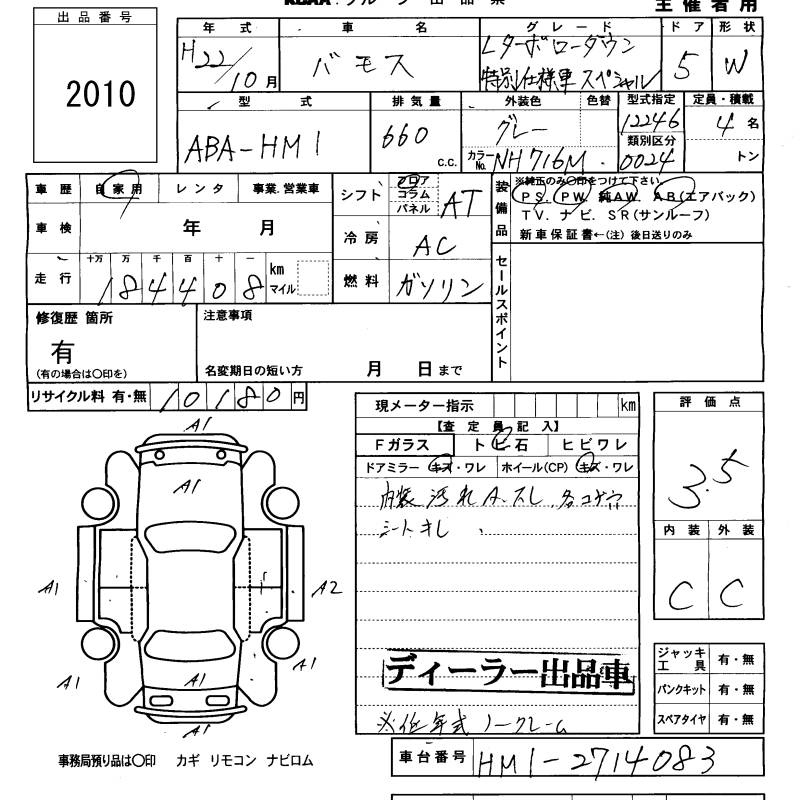 主催者用
出品番号
2010
年式 車名 グレード ドア 形状
H22/10月 バモス Lターボローダウン 特別仕様車スペシャル 5 W
型式 排気量 外装色 色替 型式指定 定員・積載
ABA-HM1 660 c.c. グレー 12246 4名
カラーNo. NH716M. 類別区分 0024 トン
車歴 自家用 レンタ 事業.営業車
シフト フロア コラム パネル AT
装備品 ※純正のみ○印をつけて下さい
PS. PW. 純AW. AB(エアバック)
TV. ナビ. SR(サンルーフ)
新車保証書←(注) 後日送りのみ
車検 年 月
冷房 AC
走行 十万 万 千 百 十 一
184408 km マイル
燃料 ガソリン
セールスポイント
修復歴 箇所
有
(有の場合は○印を)
注意事項
名変期日の短い方 月 日まで
リサイクル料 有・無 10180円
現メーター指示 km
【査定員記入】
Fガラス トビ石 ヒビワレ
ドアミラー キズ・ワレ ホイール(CP) キズ・ワレ
内装 汚れ A.スレ
シートキレ
評価点
3.5
内装 外装
C C
A1
A1
A1 A2
A1 A1 A1
A1
ディーラー出品車
※低年式 ノークレーム
ジャッキ工具 有・無
パンクキット 有・無
スペアタイヤ 有・無
事務局預り品は○印 カギ リモコン ナビロム
車台番号 HM1-2714083